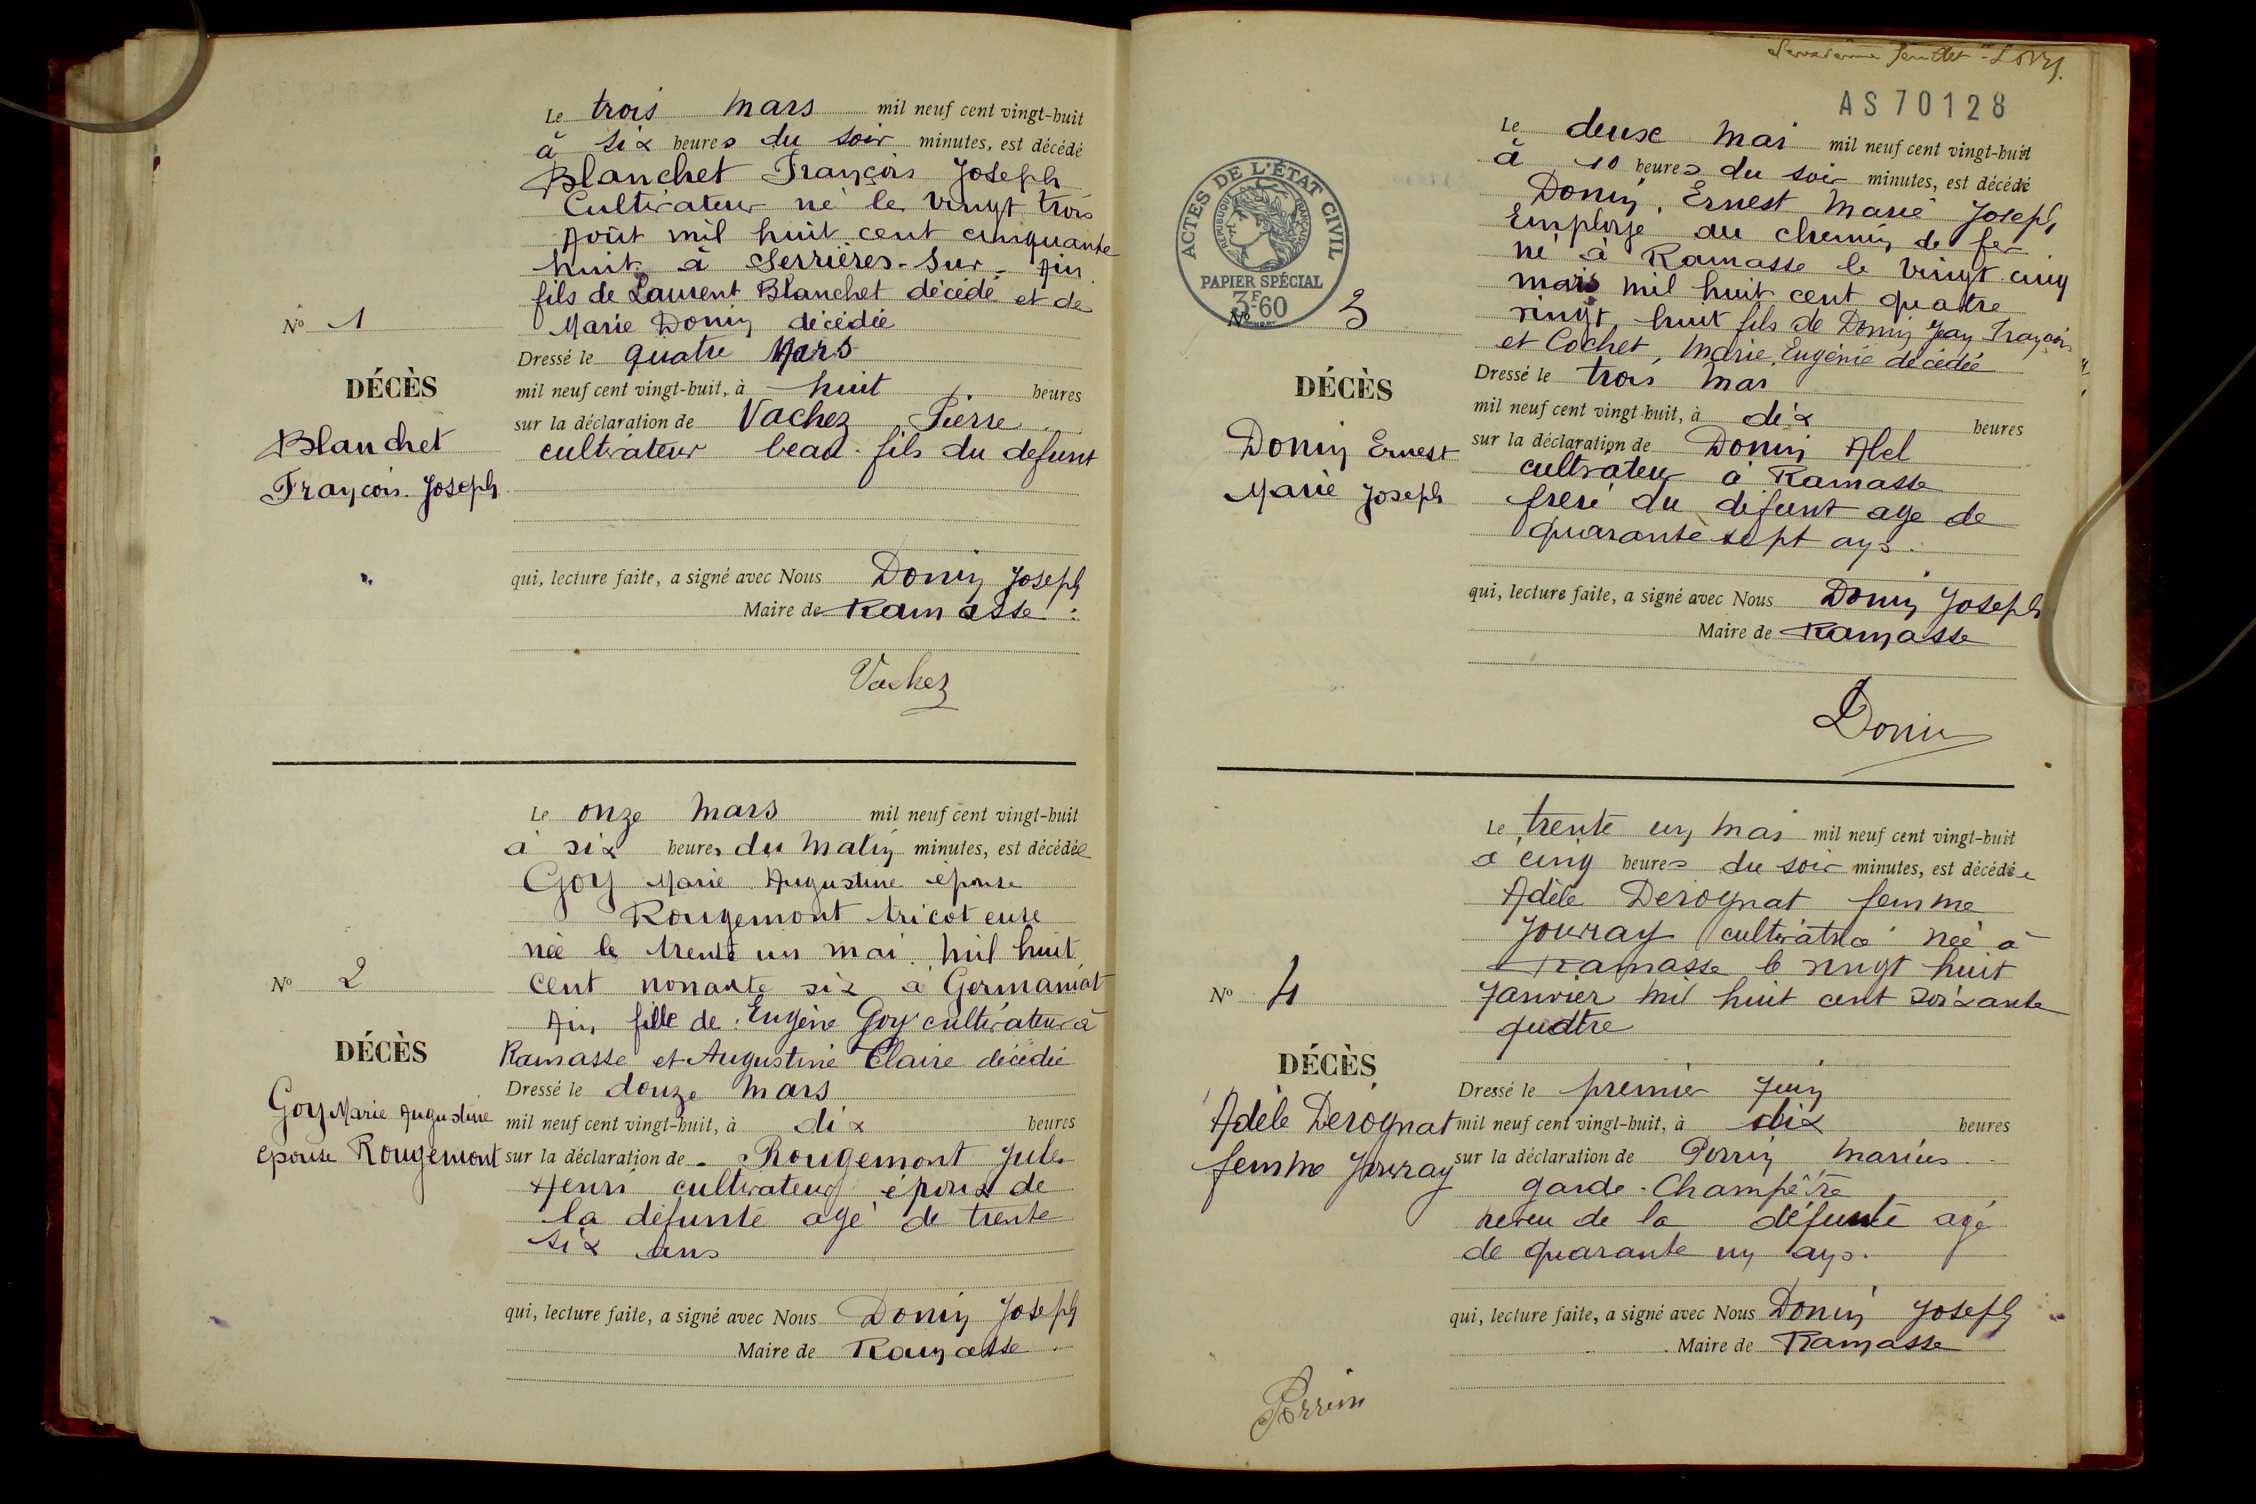 Le trois Mars mil neuf cent vingt-huit
à six heures du soir minutes, est décédé
Blanchet François Joseph
Cultivateur né le vingt trois
Août mil huit cent cinquante
huit à Serrières-Sur-Ain
fils de Laurent Blanchet décédé et de
Marie Donin décédée
No 1
Dressé le quatre Mars
DÉCÈS
mil neuf cent vingt-huit, à huit heures
Blanchet
François Joseph
sur la déclaration de Vachez Pierre
cultivateur beau-fils du defunt
qui, lecture faite, a signé avec Nous Donin Joseph
Maire de Ramasse
Vachez
Le onze Mars mil neuf cent vingt-huit
à six heures du Matin minutes, est décédée
Goy Marie Augustine épouse
Rougemont tricoteuse
née le trente un mai mil huit
cent nonante six à Germaniat
Ain fille de Eugène Goy cultivateur à
Ramasse et Augustine Claire décédée
No 2
DÉCÈS
Goy Marie Augustine
épouse Rougemont
Dressé le douze Mars
mil neuf cent vingt-huit, à dix heures
sur la déclaration de Rougemont Jules
Henri cultivateur époux de
la défunte agé de trente
six ans
qui, lecture faite, a signé avec Nous Donin Joseph
Maire de Ramasse
AS 70128
ACTES DE L'ÉTAT CIVIL
RÉPUBLIQUE FRANÇAISE
PAPIER SPÉCIAL
3F60
Le deux Mai mil neuf cent vingt-huit
à 10 heures du soir minutes, est décédé
Donin, Ernest Marie Joseph
Employe au chemin de fer
né à Ramasse le vingt cinq
mars mil huit cent quatre
vingt huit fils de Donin Jean François
et Cochet, Marie Eugénie décédée
No 3
DÉCÈS
Donin Ernest
Marie Joseph
Dressé le trois Mai
mil neuf cent vingt-huit, à dix heures
sur la déclaration de Donin Abel
cultivateur à Ramasse
frere du défunt age de
quarante sept ans.
qui, lecture faite, a signé avec Nous Donin Joseph
Maire de Ramasse
Donin
Le trente un Mai mil neuf cent vingt-huit
à cinq heures du soir minutes, est décédée
Adèle Derognat femme
Jouvray cultivatrice née à
Ramasse le vingt huit
Janvier mil huit cent soixante
quatre
No 4
DÉCÈS
Adèle Derognat
femme Jouvray
Dressé le premier Juin
mil neuf cent vingt-huit, à dix heures
sur la déclaration de Perrin Marius
garde-Champêtre
neveu de la défunte agé
de quarante un ans.
qui, lecture faite, a signé avec Nous Donin Joseph
Maire de Ramasse
Perrin